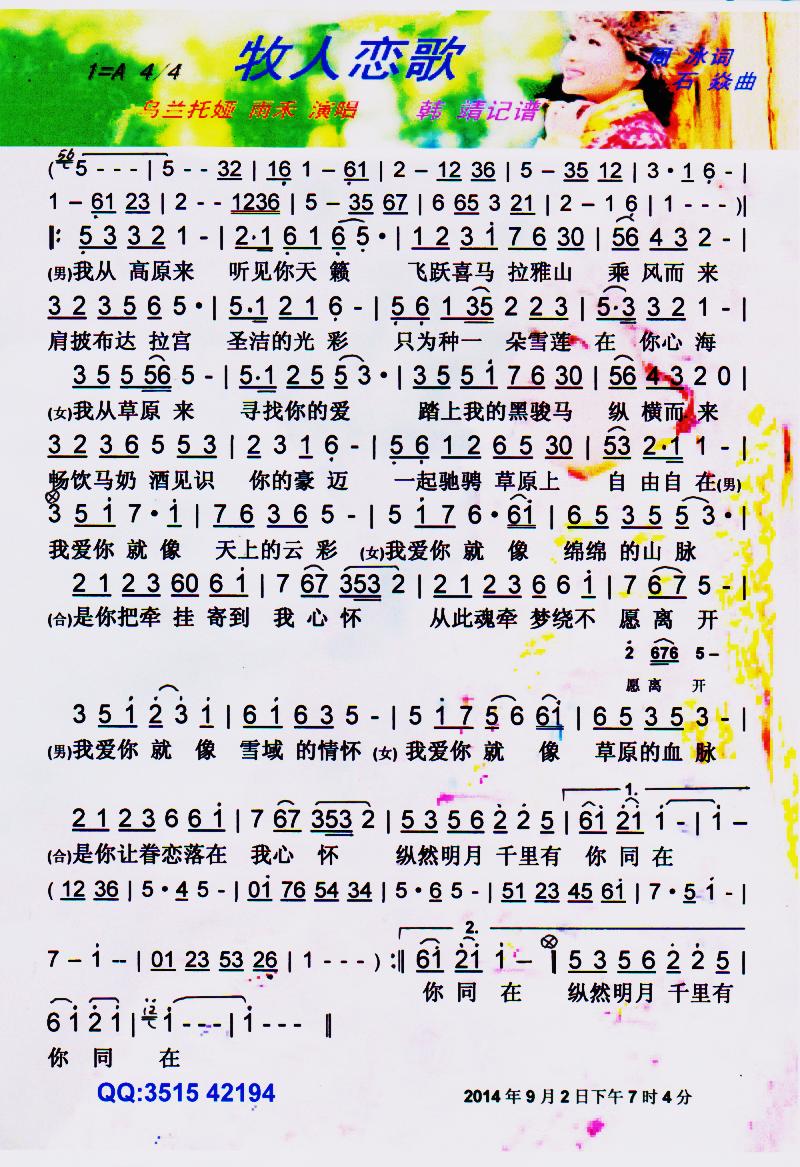 1=A 4/4 牧人恋歌 周 冰词
石 焱曲
乌兰托娅 雨禾 演唱 韩 靖记谱
( 56 5 - - - | 5 - - 32 | 16 1 - 61 | 2 - 12 36 | 5 - 35 12 | 3 · 1 6 - |
1 - 61 23 | 2 - - 1236 | 5 - 35 67 | 6 65 3 21 | 2 - 1 6 | 1 - - - )|
|: 5 3 3 2 1 - | 2·1 6 1 6 5 · | 1 2 3 1 7 6 30 | 56 4 3 2 - |
(男)我从 高原来 听见你天 籁 飞跃喜马 拉雅山 乘 风而 来
3 2 3 5 6 5 · | 5·1 2 1 6 - | 5 6 1 35 2 2 3 | 5·3 3 2 1 - |
肩披布达 拉宫 圣洁的光 彩 只为种一 朵雪莲 在 你心 海
3 5 5 56 5 - | 5·1 2 5 5 3 · | 3 5 5 1 7 6 30 | 56 4 3 2 0 |
(女)我从草原 来 寻找你的 爱 踏上我的黑骏马 纵 横而 来
3 2 3 6 5 5 3 | 2 3 1 6 - | 5 6 1 2 6 5 30 | 53 2·1 1 - |
畅饮马奶 酒见识 你的豪 迈 一起驰骋 草原上 自 由自 在(男)
3 5 1 7 · 1 | 7 6 3 6 5 - | 5 1 7 6 · 61 | 6 5 3 5 5 3 · |
我爱你 就 像 天上的云 彩 (女)我爱你 就 像 绵绵 的山 脉
2 1 2 3 60 6 1 | 7 67 353 2 | 2 1 2 3 6 6 1 | 7 6 7 5 - |
(合)是你把牵 挂 寄到 我 心 怀 从此魂牵 梦绕不 愿 离 开
2 676 5 -
愿 离 开
3 5 1 2 3 1 | 6 1 6 3 5 - | 5 1 7 5 6 61 | 6 5 3 5 3 - |
(男)我爱你 就 像 雪域 的情怀 (女) 我爱你 就 像 草原的血 脉
1.
2 1 2 3 6 6 1 | 7 67 353 2 | 5 3 5 6 2 2 5 | 61 21 1 - | 1 -
(合)是你让眷恋落在 我心 怀 纵然明月 千里有 你 同 在
( 12 36 | 5 · 4 5 - | 01 76 54 34 | 5 · 6 5 - | 51 23 45 61 | 7 · 5 1 - |
2.
7 - 1 -- | 01 23 53 26 | 1 - - - ) :|| 61 21 1 - | 5 3 5 6 2 2 5 |
你 同 在 纵然明月 千里有
6 1 2 1 | 12 1 - - - | 1 - ||
你 同 在
QQ:3515 42194 2014 年 9 月 2 日下午 7 时 4 分